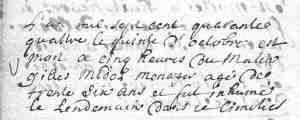 L'an mil sept cent quarante
quatre le quinse d'octobre est
mort a cinq heures du matin
gilles menager agé de
trente six ans et fut inhumé
le lendemain dans le cimetiere